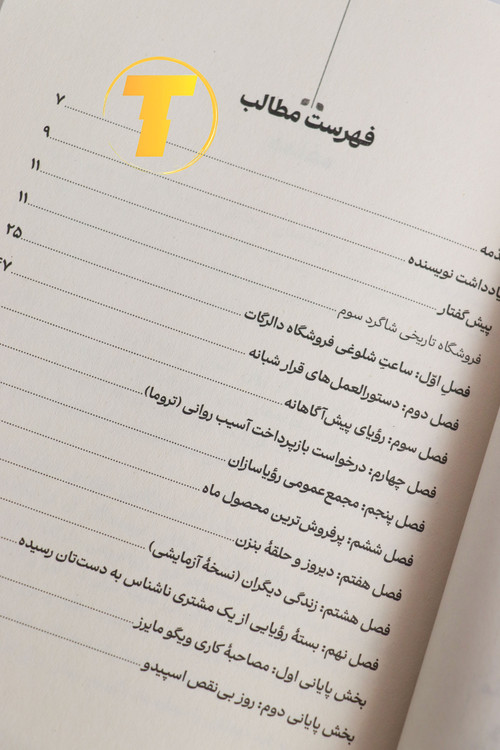 T
فهرست مطالب
۷
یادداشت نویسنده ۹
پیش‌گفتار ۱۱
فروشگاه تاریخی شاگرد سوم ۱۱
فصل اوّل: ساعتِ شلوغی فروشگاه دالرگات ۲۵
فصل دوم: دستورالعمل‌های قرار شبانه
فصل سوم: رؤیای پیش‌آگاهانه
فصل چهارم: درخواست بازپرداخت آسیب روانی (تروما)
فصل پنجم: مجمع عمومی رؤیاسازان
فصل ششم: پرفروش‌ترین محصول ماه
فصل هفتم: دیروز و حلقهٔ بنزن
فصل هشتم: زندگی دیگران (نسخهٔ آزمایشی)
فصل نهم: بستهٔ رؤیایی از یک مشتری ناشناس به دست‌تان رسیده
بخش پایانی اول: مصاحبهٔ کاری ویگو مایرز
بخش پایانی دوم: روز بی‌نقص اسپیدو